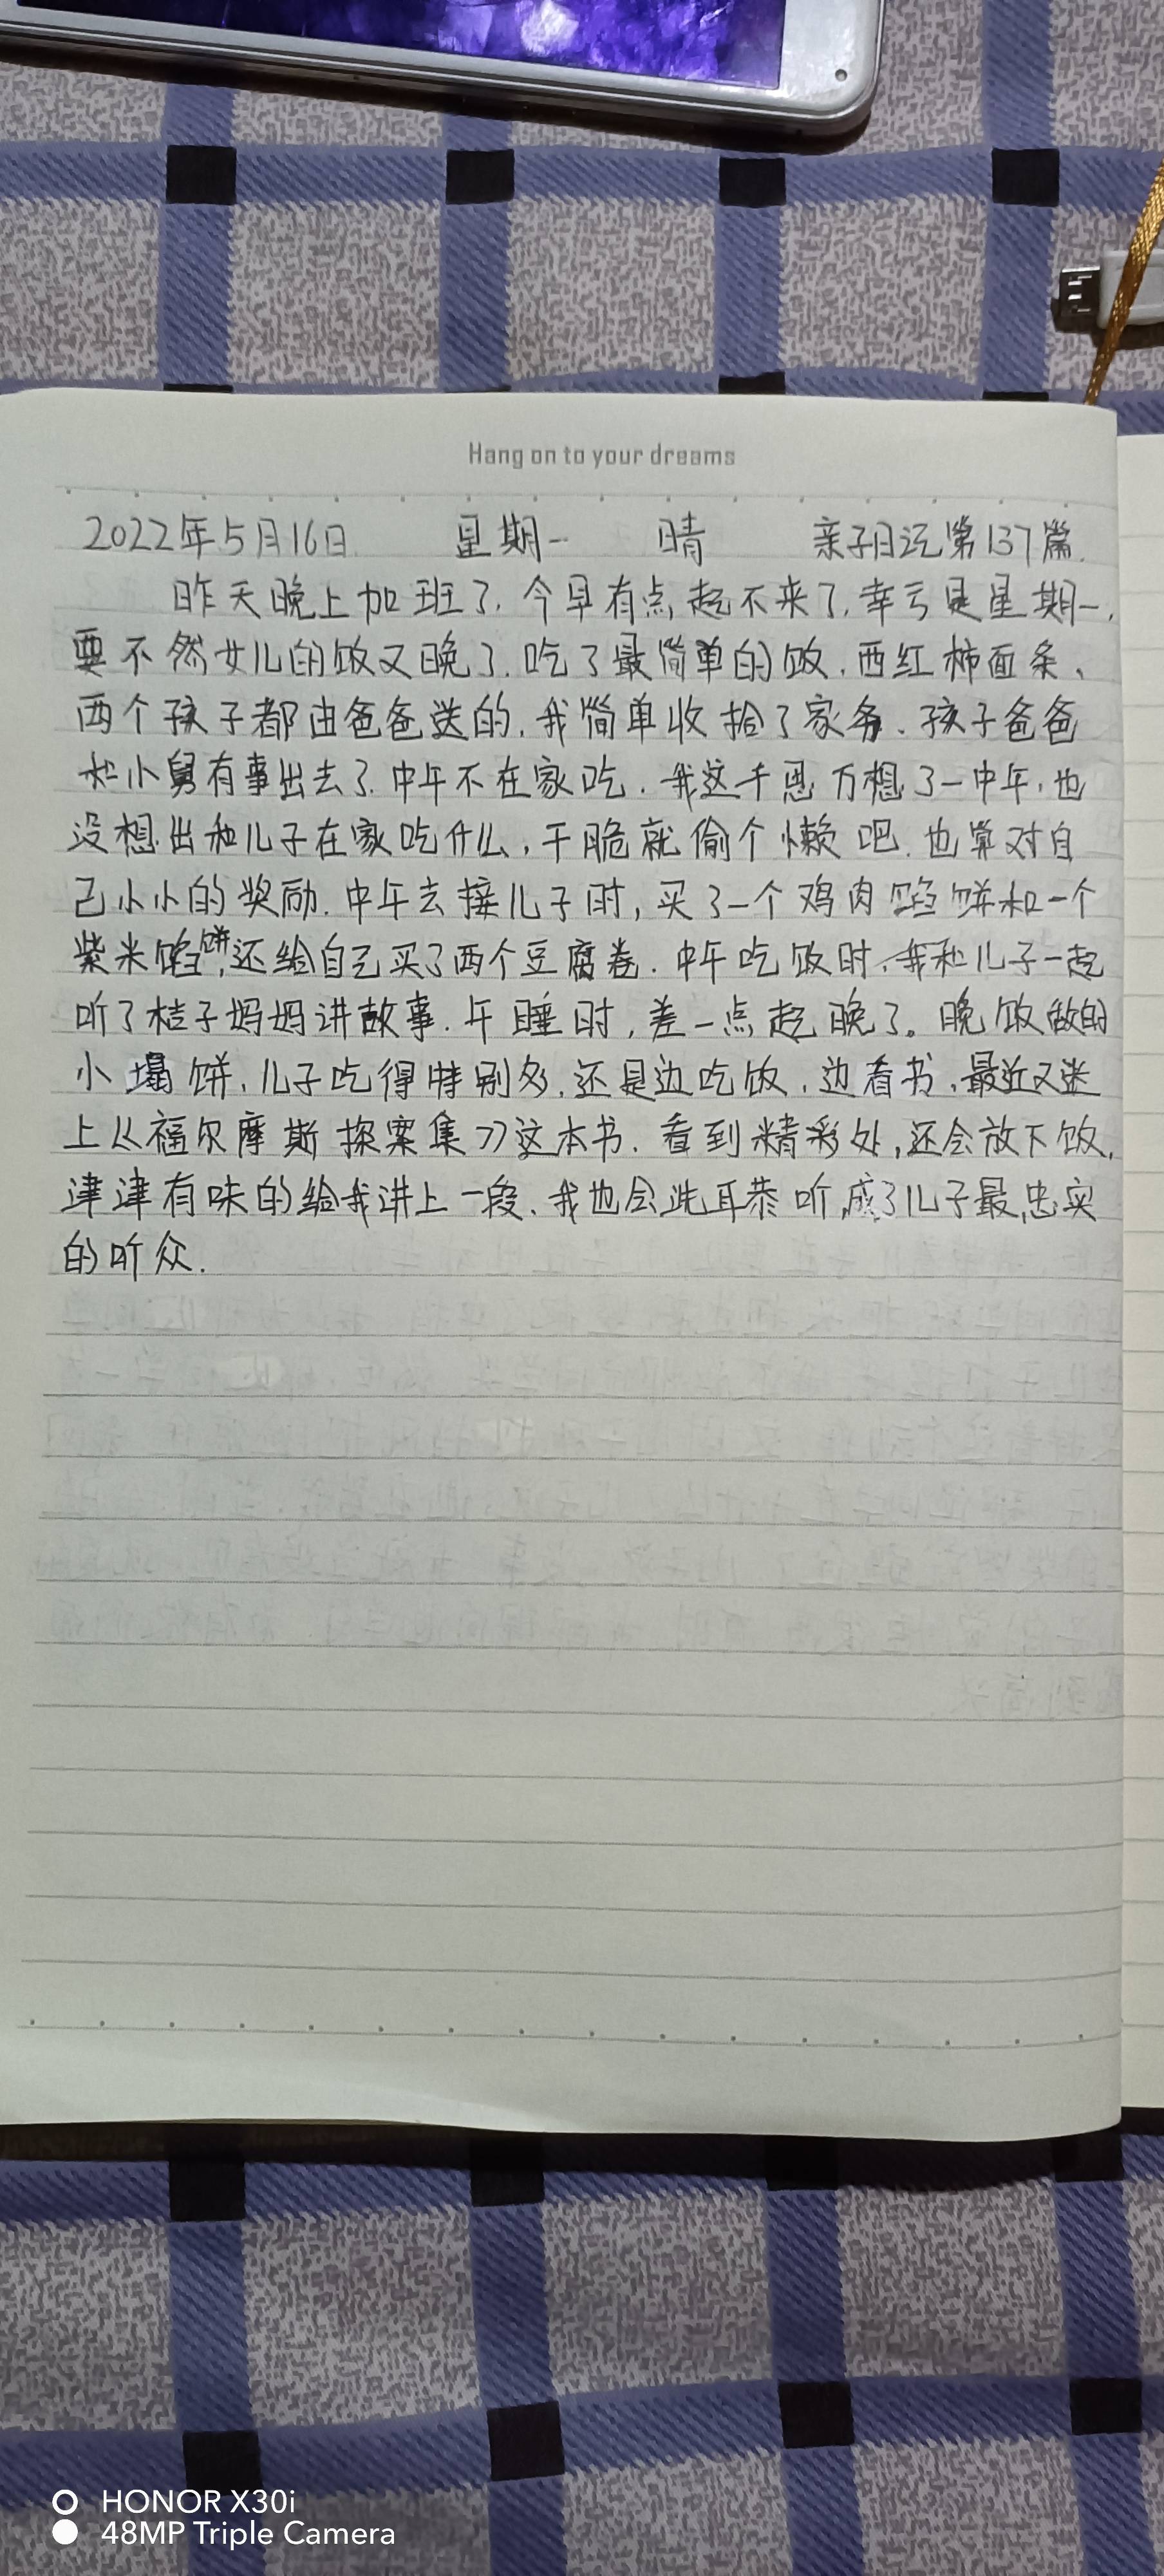 Hang on to your dreams
2022年5月16日 星期一 晴 亲子日记第137篇.
昨天晚上加班了,今早有点起不来了,幸亏是星期一,
要不然女儿的饭又晚了.吃了最简单的饭.西红柿面条、
两个孩子都由爸爸送的,我简单收拾了家务.孩子爸爸
和小舅有事出去了.中午不在家吃.我这千思万想了一中午,也
没想出和儿子在家吃什么,干脆就偷个懒吧.也算对自
己小小的奖励.中午去接儿子时,买了一个鸡肉馅饼和一个
紫米馅饼,还给自己买了两个豆腐卷.中午吃饭时,我和儿子一起
听了桔子妈妈讲故事.午睡时,差一点起晚了。晚饭做的
小塌饼,儿子吃得特别多,还是边吃饭,边看书,最近又迷
上《福尔摩斯探案集》这本书.看到精彩处,还会放下饭,
津津有味的给我讲上一段.我也会洗耳恭听,成了儿子最忠实
的听众.
HONOR X30i
48MP Triple Camera